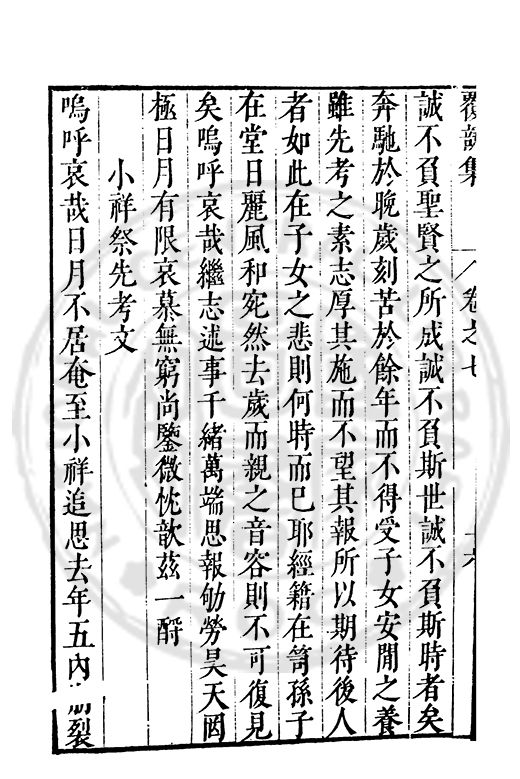 覆瓿集
卷之七
十六
誠不負聖賢之所成誠不負斯世誠不負斯時者矣
奔馳於晚歲刻苦於餘年而不得受子女安閒之養
雖先考之素志厚其施而不望其報所以期待後人
者如此在子女之悲則何時而已耶經籍在笥孫子
在堂日麗風和宛然去歲而親之音容則不可復見
矣嗚呼哀哉繼志述事千緒萬端思報劬勞昊天罔
極日月有限哀慕無窮尚鑒微忱歆茲一酹
小祥祭先考文
嗚呼哀哉日月不居奄至小祥追思去年五內崩裂